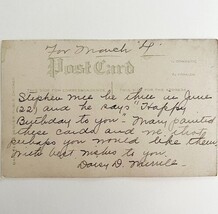 For March 4.
Post Card
Stephen will be three in June
(22) and he says "Happy
Birthday to you" - Mary painted
these cards and we thot
perhaps you would like them,
With best wishes to you,
Daisy D. Merrill